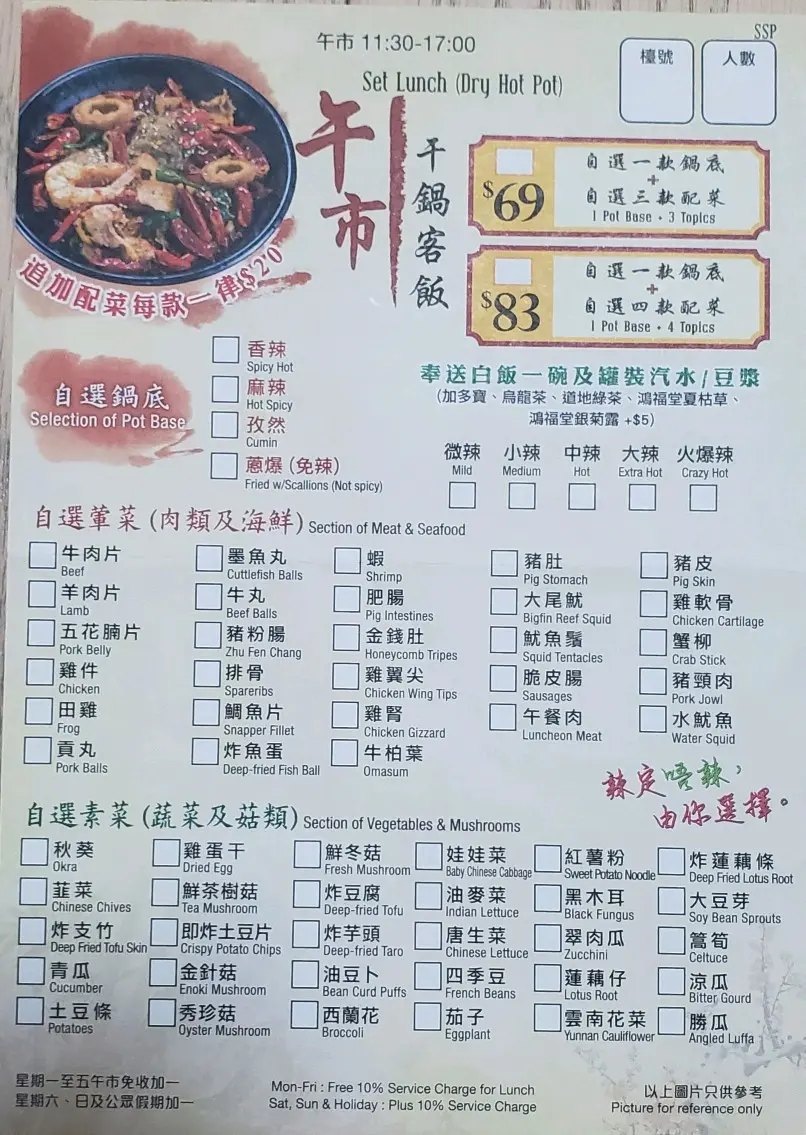 SSP
午市 11:30-17:00
Set Lunch (Dry Hot Pot)
檯號
人數
午市
干鍋客飯
$69
自選一款鍋底
+
自選三款配菜
1 Pot Base + 3 Topics
$83
自選一款鍋底
+
自選四款配菜
1 Pot Base + 4 Topics
追加配菜每款一律$20
自選鍋底
Selection of Pot Base
香辣
Spicy Hot
麻辣
Hot Spicy
孜然
Cumin
蔥爆 (免辣)
Fried w/Scallions (Not spicy)
奉送白飯一碗及罐裝汽水/豆漿
(加多寶、烏龍茶、道地綠茶、鴻福堂夏枯草、
鴻福堂銀菊露 +$5)
微辣
Mild
小辣
Medium
中辣
Hot
大辣
Extra Hot
火爆辣
Crazy Hot
自選葷菜 (肉類及海鮮) Section of Meat & Seafood
牛肉片
Beef
羊肉片
Lamb
五花腩片
Pork Belly
雞件
Chicken
田雞
Frog
貢丸
Pork Balls
墨魚丸
Cuttlefish Balls
牛丸
Beef Balls
豬粉腸
Zhu Fen Chang
排骨
Spareribs
鯛魚片
Snapper Fillet
炸魚蛋
Deep-fried Fish Ball
蝦
Shrimp
肥腸
Pig Intestines
金錢肚
Honeycomb Tripes
雞翼尖
Chicken Wing Tips
雞腎
Chicken Gizzard
牛柏葉
Omasum
豬肚
Pig Stomach
大尾魷
Bigfin Reef Squid
魷魚鬚
Squid Tentacles
脆皮腸
Sausages
午餐肉
Luncheon Meat
豬皮
Pig Skin
雞軟骨
Chicken Cartilage
蟹柳
Crab Stick
豬頸肉
Pork Jowl
水魷魚
Water Squid
辣定唔辣，
由你選擇。
自選素菜 (蔬菜及菇類) Section of Vegetables & Mushrooms
秋葵
Okra
韮菜
Chinese Chives
炸支竹
Deep Fried Tofu Skin
青瓜
Cucumber
土豆條
Potatoes
雞蛋干
Dried Egg
鮮茶樹菇
Tea Mushroom
即炸土豆片
Crispy Potato Chips
金針菇
Enoki Mushroom
秀珍菇
Oyster Mushroom
鮮冬菇
Fresh Mushroom
炸豆腐
Deep-fried Tofu
炸芋頭
Deep-fried Taro
油豆卜
Bean Curd Puffs
西蘭花
Broccoli
娃娃菜
Baby Chinese Cabbage
油麥菜
Indian Lettuce
唐生菜
Chinese Lettuce
四季豆
French Beans
茄子
Eggplant
紅薯粉
Sweet Potato Noodle
黑木耳
Black Fungus
翠肉瓜
Zucchini
蓮藕仔
Lotus Root
雲南花菜
Yunnan Cauliflower
炸蓮藕條
Deep Fried Lotus Root
大豆芽
Soy Bean Sprouts
萵筍
Celtuce
涼瓜
Bitter Gourd
勝瓜
Angled Luffa
星期一至五午市免收加一
星期六、日及公眾假期加一
Mon-Fri : Free 10% Service Charge for Lunch
Sat, Sun & Holiday : Plus 10% Service Charge
以上圖片只供參考
Picture for reference only